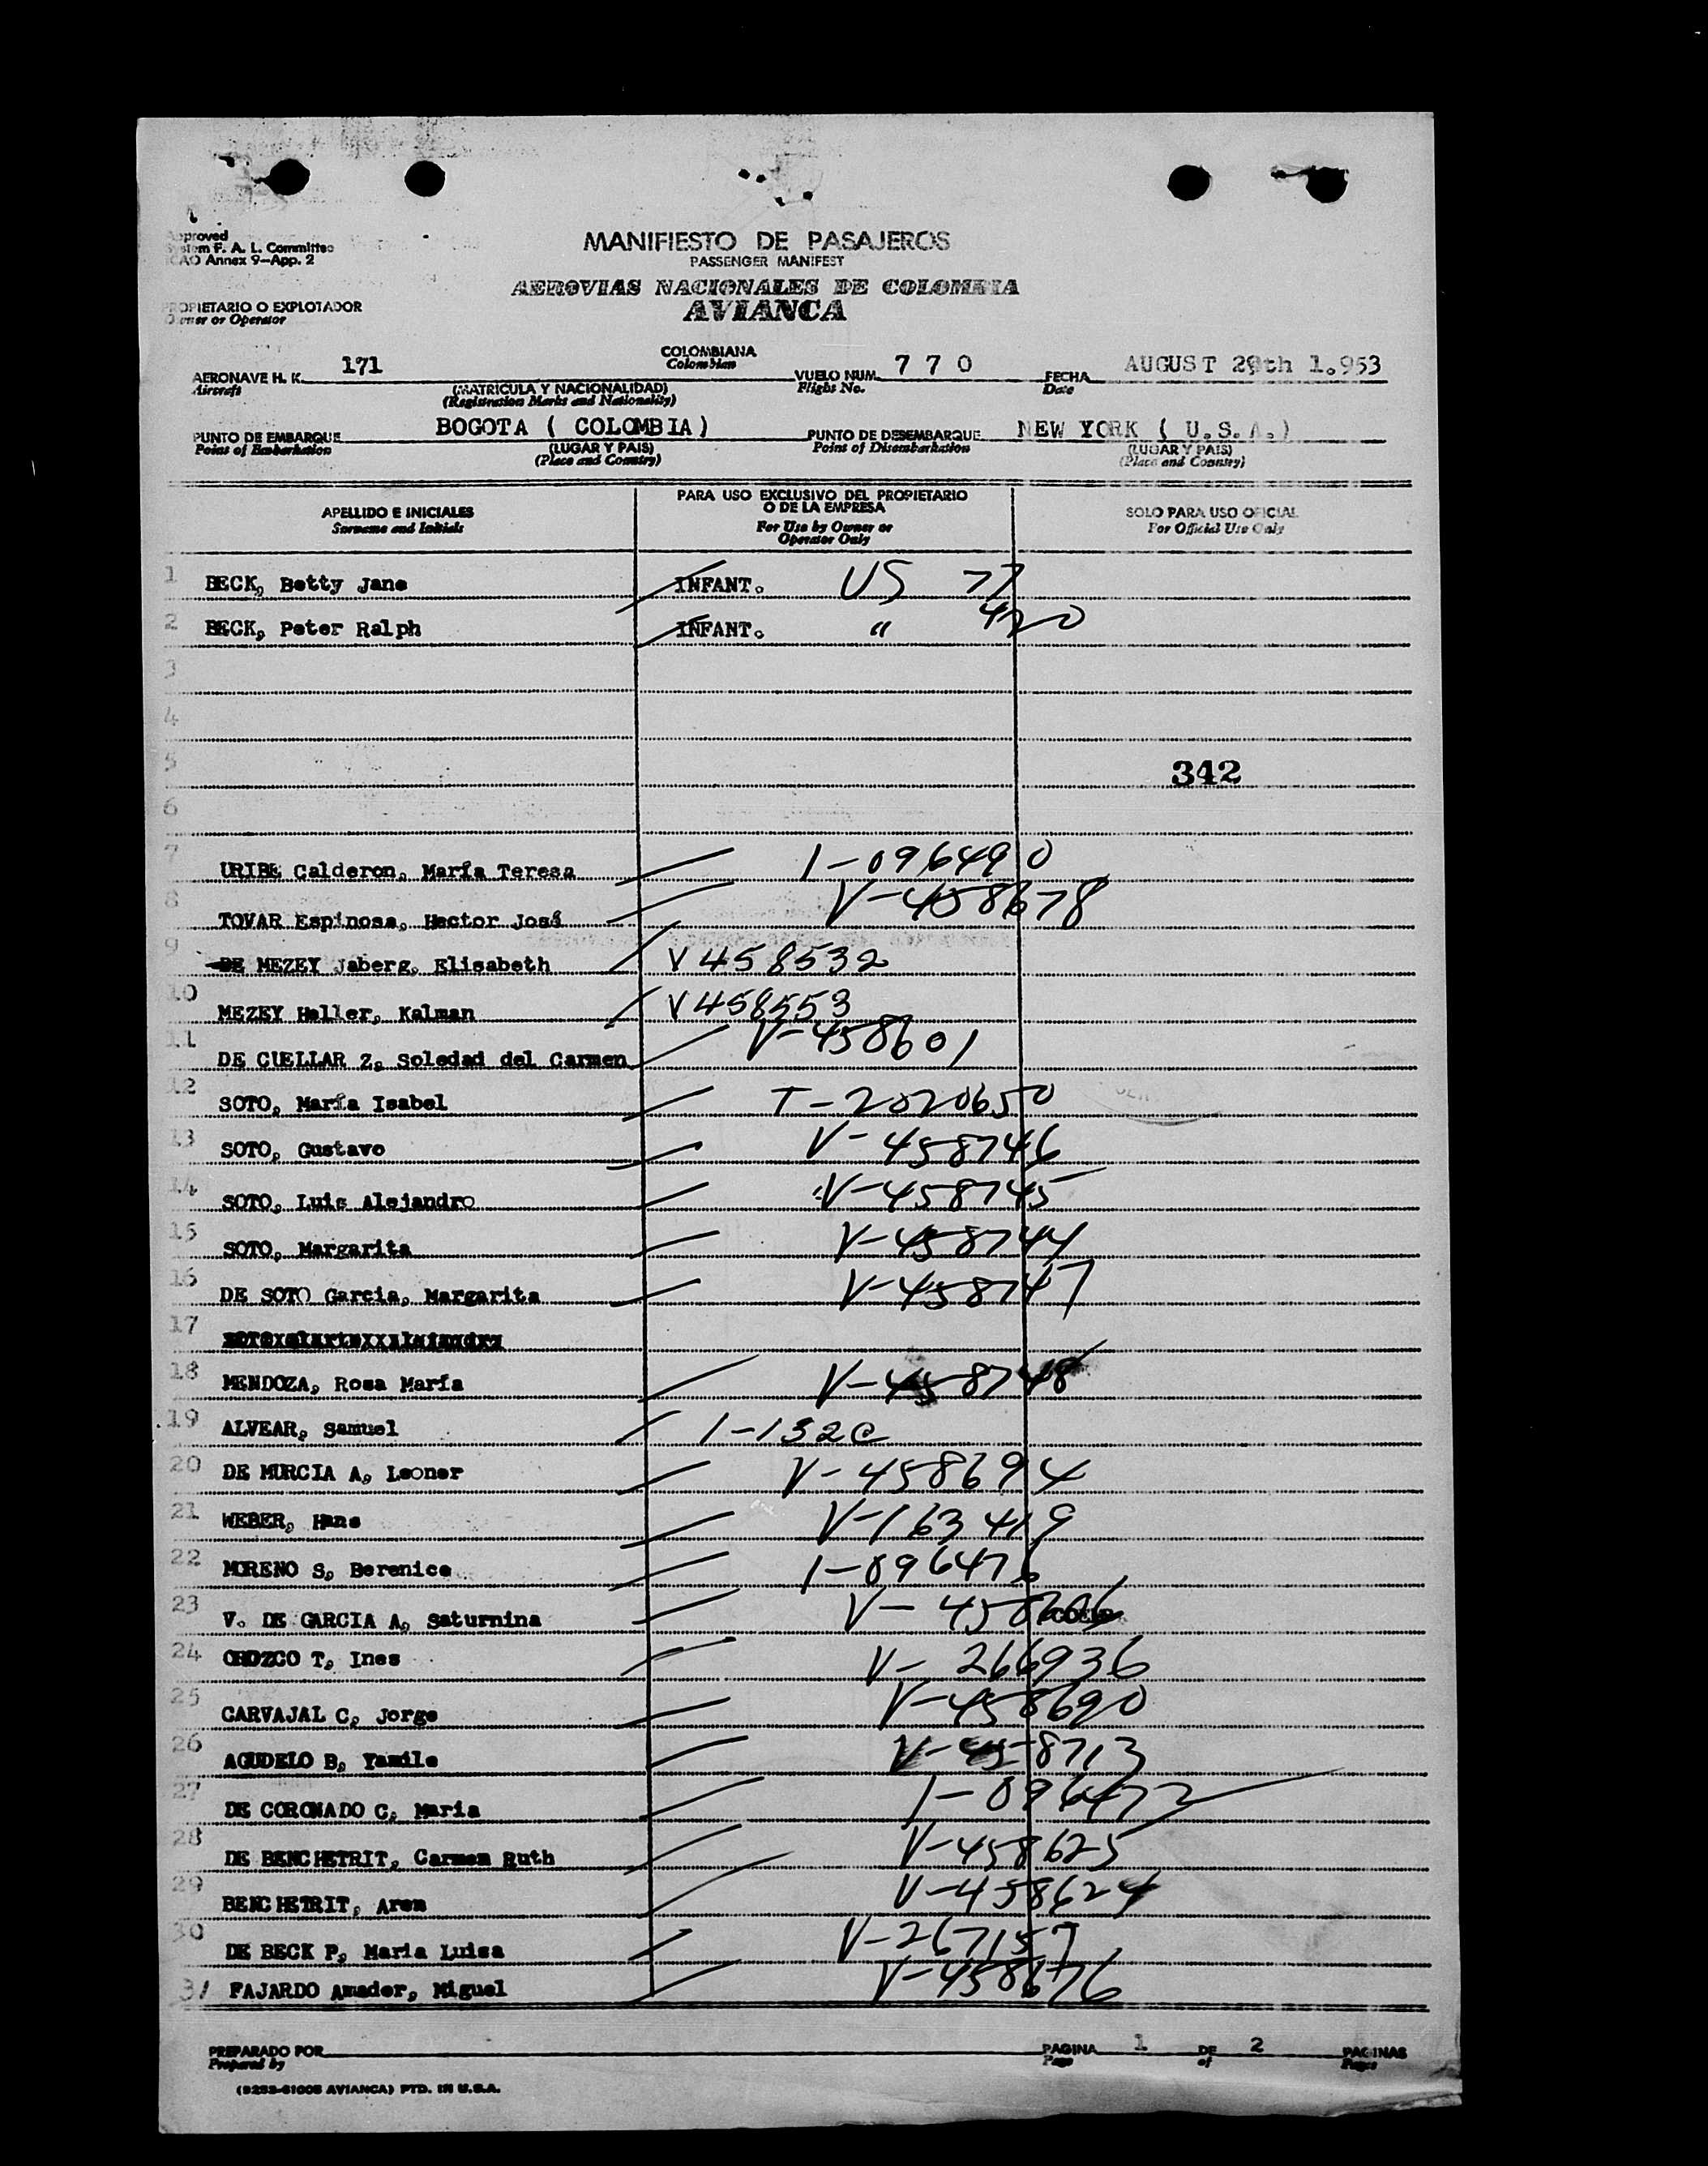 Approved
System F. A. L. Committee
ICAO Annex 9—App. 2
MANIFIESTO DE PASAJEROS
PASSENGER MANIFEST
AEROVIAS NACIONALES DE COLOMBIA
AVIANCA
PROPIETARIO O EXPLOTADOR
Owner or Operator
AERONAVE H. K. 171 COLOMBIANA VUELO NUM. 7 7 0 FECHA AUGUST 29th 1.953
Aircraft Colombian Flight No. Date
(MATRICULA Y NACIONALIDAD)
(Registration Marks and Nationality)
PUNTO DE EMBARQUE BOGOTA ( COLOMBIA ) PUNTO DE DESEMBARQUE NEW YORK ( U.S.A.)
Point of Embarkation (LUGAR Y PAIS) Point of Disembarkation (LUGAR Y PAIS)
(Place and Country) (Place and Country)
APELLIDO E INICIALES
Surname and Initials
PARA USO EXCLUSIVO DEL PROPIETARIO
O DE LA EMPRESA
For Use by Owner or
Operator Only
SOLO PARA USO OFICIAL
For Official Use Only
1 BECK, Betty Jane INFANT. US 77
2 BECK, Peter Ralph INFANT. " 420
3
4
5 342
6
7 URIBE Calderon, María Teresa 1-0964990
8 TOVAR Espinosa, Hector José V-458678
9 DE MEZEY Jaberg, Elisabeth V458532
10 MEZEY Heller, Kalman V458553
11 DE CUELLAR Z, Soledad del Carmen V-458601
12 SOTO, María Isabel T-2020650
13 SOTO, Gustavo V-458746
14 SOTO, Luis Alejandro V-458745
15 SOTO, Margarita V-458744
16 DE SOTO Garcia, Margarita V-458747
17
18 MENDOZA, Rosa María V-458748
19 ALVEAR, Samuel 1-132
20 DE MURCIA A, Leonor V-458694
21 WEBER, Hans V-163419
22 MORENO S, Berenice 1-096476
23 V. DE GARCIA A, Saturnina
24 OROZCO T, Ines V-266936
25 CARVAJAL C, Jorge V-458690
26 AGUDELO B, Yamile V-458713
27 DE CORONADO C, Maria 1-096472
28 DE BENCHETRIT, Carmen Ruth V-458625
29 BENCHETRIT, Aron V-458624
30 DE BECK P, Maria Luisa V-267157
31 FAJARDO Amador, Miguel V-458676
PREPARADO POR PAGINA 1 DE 2 PAGINAS
Prepared by Page of Pages
(8253-61005 AVIANCA) PTD. IN U.S.A.